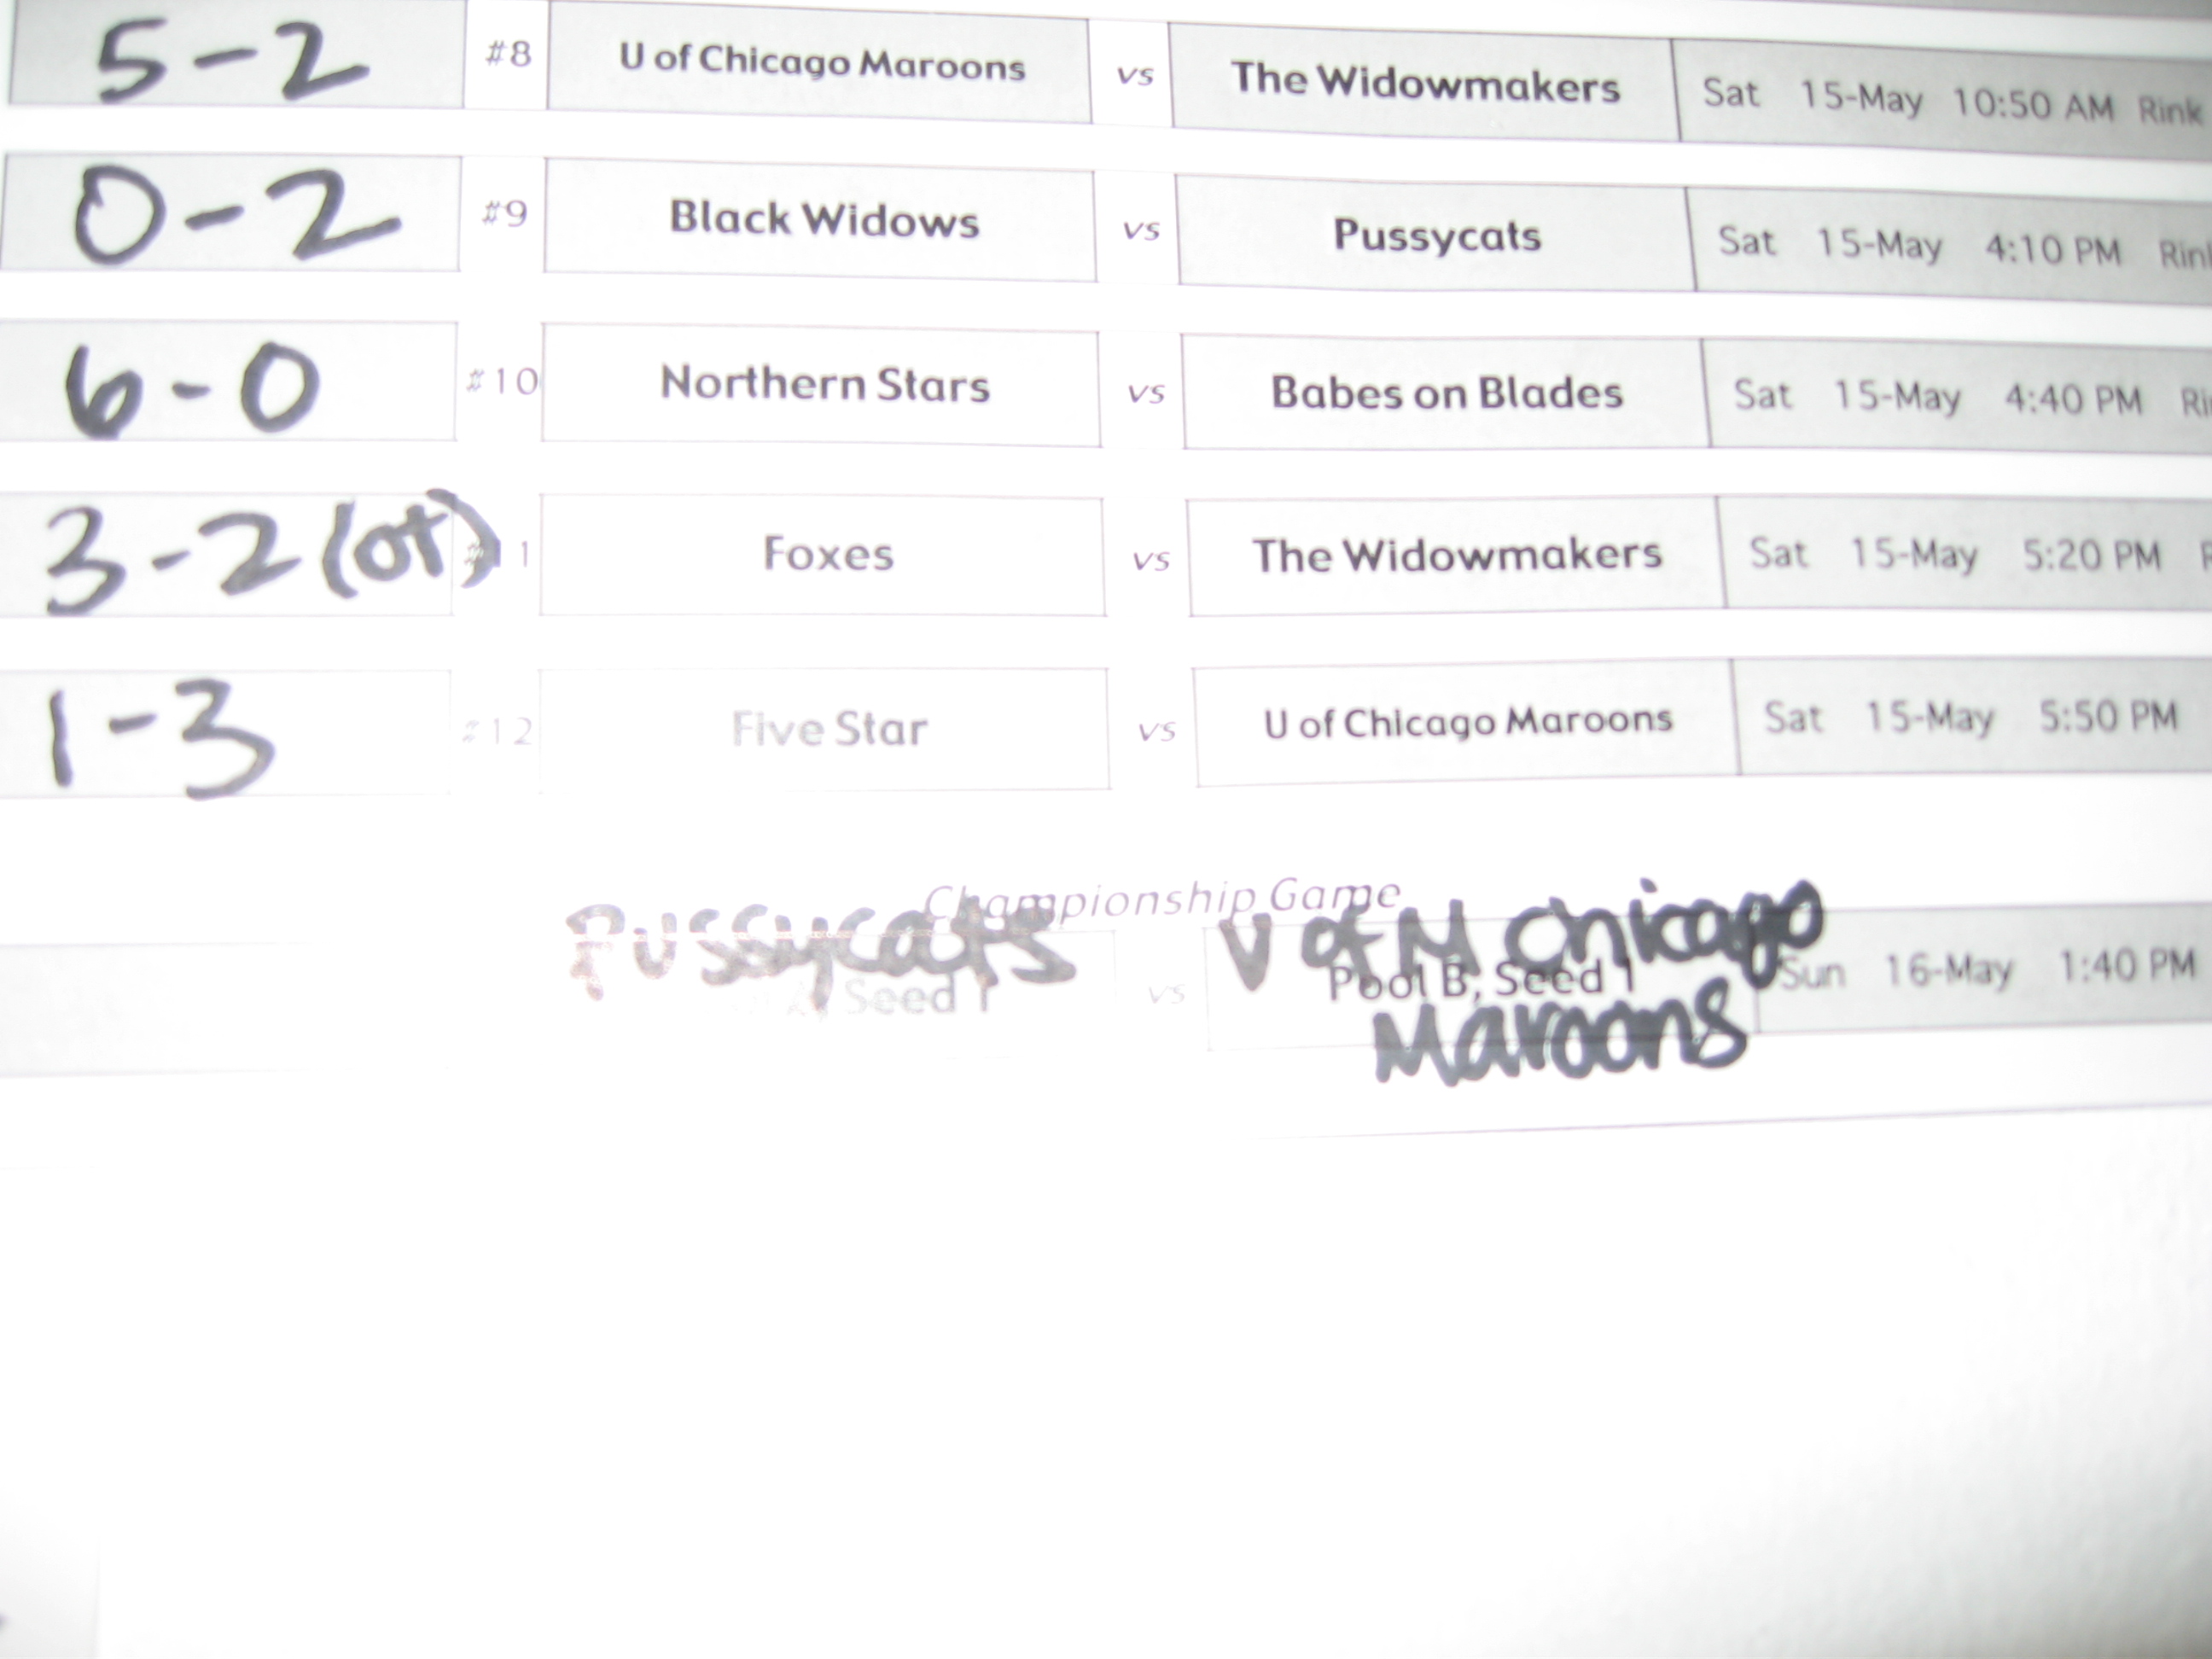 5-2 #8 U of Chicago Maroons vs The Widowmakers Sat 15-May 10:50 AM Rink
0-2 #9 Black Widows vs Pussycats Sat 15-May 4:10 PM
6-0 #10 Northern Stars vs Babes on Blades Sat 15-May 4:40 PM
3-2 (ot) #11 Foxes vs The Widowmakers Sat 15-May 5:20 PM
1-3 #12 Five Star vs U of Chicago Maroons Sat 15-May 5:50 PM
Championship Game
Pussycats U of M Chicago
Seed 1 vs Pool B, Seed 1 Sun 16-May 1:40 PM
Maroons